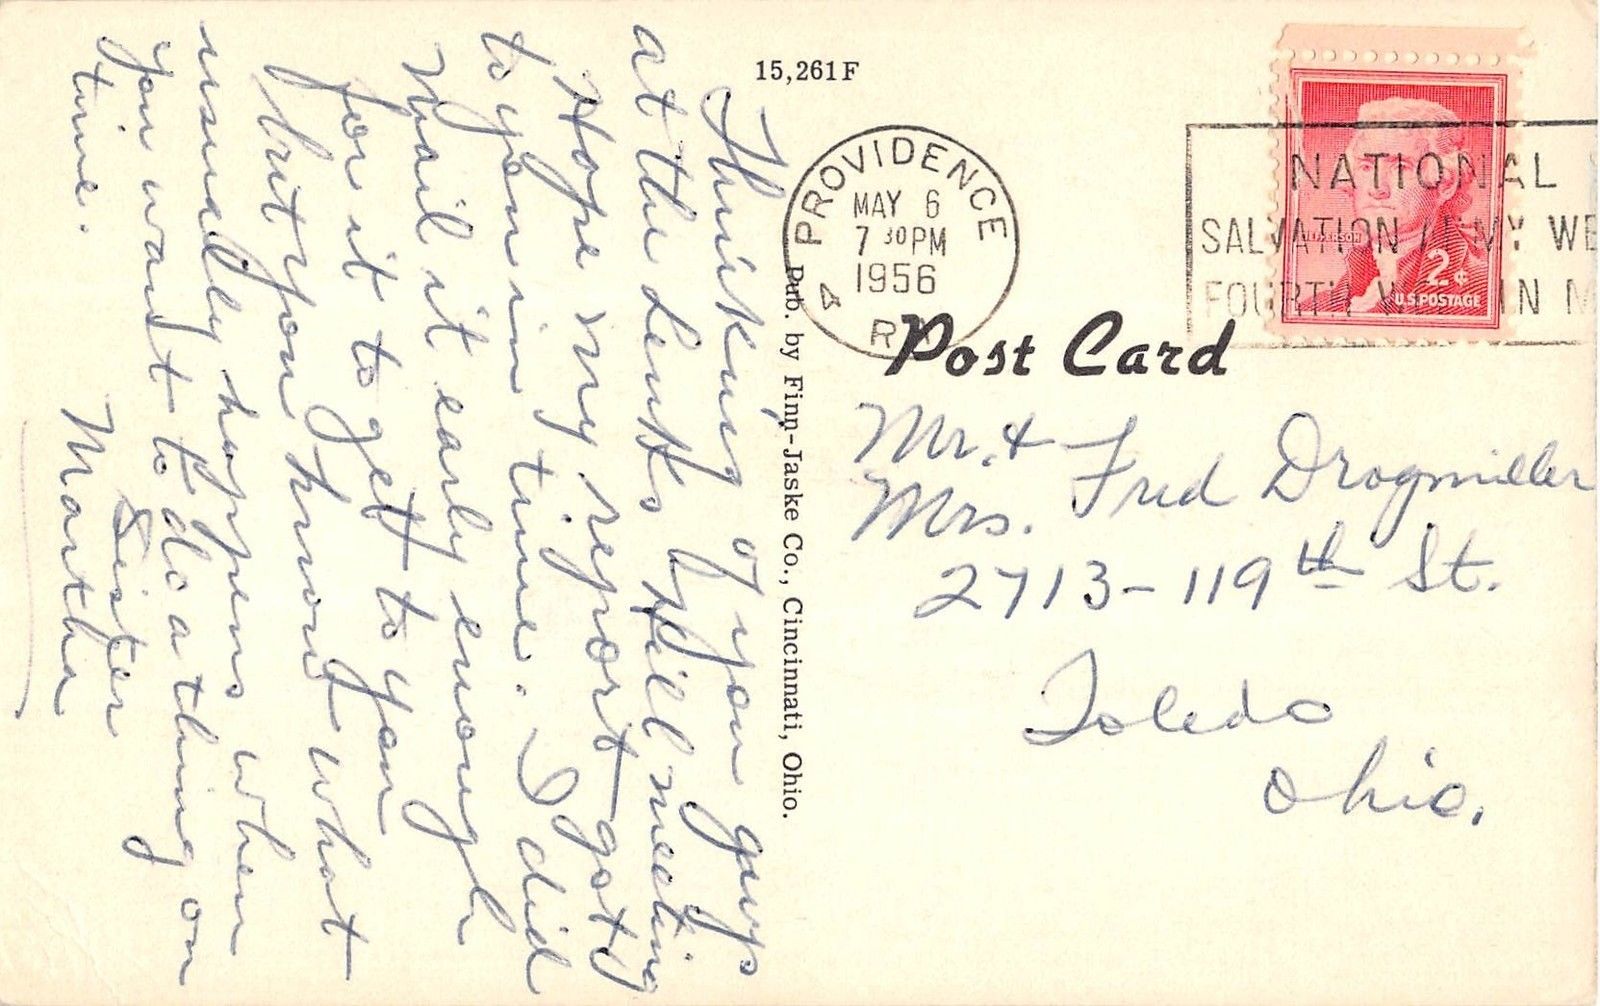 15,261F
PROVIDENCE
MAY 6
7 30 PM
1956
R
NATIONAL
SALVATION ARMY WE
FOURTH IN M
JEFFERSON
2¢
U.S. POSTAGE
Post Card
Pub. by Finn-Jaske Co., Cincinnati, Ohio.
Thinking of you guys
at the Lenks Hill meeting
Hope my report gets
to you in time. I did
mail it early enough
for it to get to you
but you know what
usually happens when
you want to do a thing on
time.
Sister
Martha
Mr. &
Mrs. Fred Drogmiller
2713-119th St.
Toledo
Ohio.